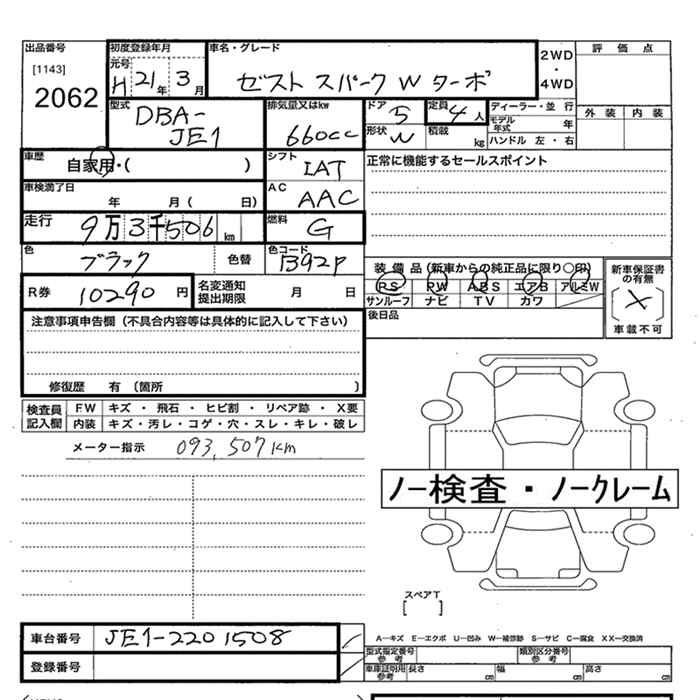 出品番号 初度登録年月 車名・グレード
[1143] 元号
2062 H 21年 3月 ゼスト スパーク W ターボ 2WD・4WD 評価点
型式 排気量又はkw ドア 定員 ディーラー・並行 外装 内装
DBA-JE1 660cc 5 4人 モデル年式 年
形状 W 積載 kg ハンドル 左・右
車歴 自家用・( ) シフト IAT 正常に機能するセールスポイント
車検満了日 年 月( 日) AC AAC
走行 9万3千506km 燃料 G
色 ブラック 色替 色コード B92P
装備品(新車からの純正品に限り○印) 新車保証書の有無
R券 10290円 名変通知提出期限 月 日 PS PW ABS エアB アルミW [×]
サンルーフ ナビ TV カワ 車載不可
注意事項申告欄(不具合内容等は具体的に記入して下さい) 後日品
修復歴 有 〔箇所 〕
検査員記入欄 FW キズ・飛石・ヒビ割・リペア跡・X要
内装 キズ・汚レ・コゲ・穴・スレ・キレ・破レ
メーター指示 093,507km
ノー検査・ノークレーム
スペアT
[ ]
車台番号 JE1-2201508 A-キズ E-エクボ U-凹み W-補修跡 S-サビ C-腐食 XX-交換済
登録番号 型式指定番号 参考 類別区分番号 参考
車庫証明用 参考 長さ cm 幅 cm 高さ cm